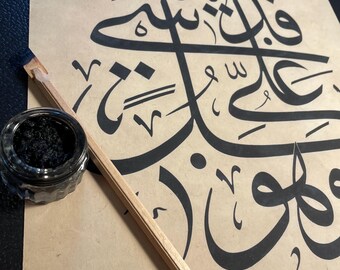 وهو
على كل
شيء قدير